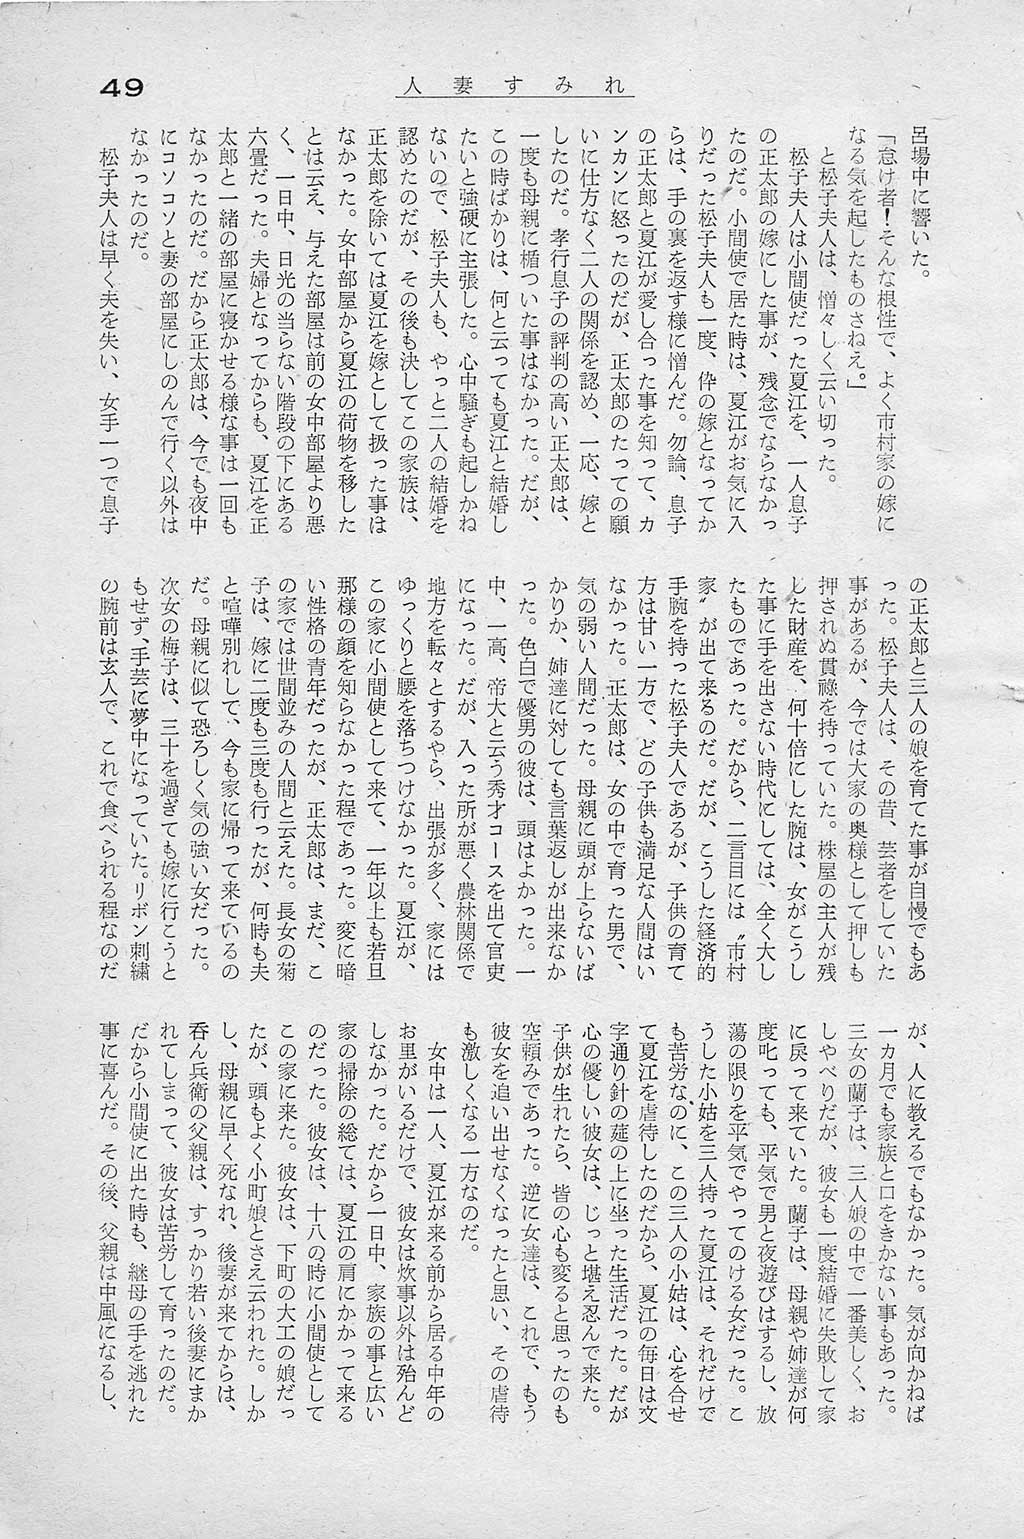 49
人妻すみれ
呂場中に響いた。
「怠け者！そんな根性で、よく市村家の嫁に
なる気を起したものさねえ。」
と松子夫人は、憎々しく云い切った。
松子夫人は小間使だった夏江を、一人息子
の正太郎の嫁にした事が、残念でならなかっ
たのだ。小間使で居た時は、夏江がお気に入
りだった松子夫人も一度、伜の嫁となってか
らは、手の裏を返す様に憎んだ。勿論、息子
の正太郎と夏江が愛し合った事を知って、カ
ンカンに怒ったのだが、正太郎のたっての願
いに仕方なく二人の関係を認め、一応、嫁と
したのだ。孝行息子の評判の高い正太郎は、
一度も母親に楯ついた事はなかった。だが、
この時ばかりは、何と云っても夏江と結婚し
たいと強硬に主張した。心中騒ぎも起しかね
ないので、松子夫人も、やっと二人の結婚を
認めたのだが、その後も決してこの家族は、
正太郎を除いては夏江を嫁として扱った事は
なかった。女中部屋から夏江の荷物を移した
とは云え、与えた部屋は前の女中部屋より悪
く、一日中、日光の当らない階段の下にある
六畳だった。夫婦となってからも、夏江を正
太郎と一緒の部屋に寝かせる様な事は一回も
なかったのだ。だから正太郎は、今でも夜中
にコソコソと妻の部屋にしのんで行く以外は
なかったのだ。
松子夫人は早く夫を失い、女手一つで息子
の正太郎と三人の娘を育てた事が自慢でもあ
った。松子夫人は、その昔、芸者をしていた
事があるが、今では大家の奥様として押しも
押されぬ貫祿を持っていた。株屋の主人が残
した財産を、何十倍にした腕は、女がこうし
た事に手を出さない時代にしては、全く大し
たものであった。だから、二言目には〝市村
家〟が出て来るのだ。だが、こうした経済的
手腕を持った松子夫人であるが、子供の育て
方は甘い一方で、どの子供も満足な人間はい
なかった。正太郎は、女の中で育った男で、
気の弱い人間だった。母親に頭が上らないば
かりか、姉達に対しても言葉返しが出来なか
った。色白で優男の彼は、頭はよかった。一
中、一高、帝大と云う秀才コースを出て官吏
になった。だが、入った所が悪く農林関係で
地方を転々とするやら、出張が多く、家には
ゆっくりと腰を落ちつけなかった。夏江が、
この家に小間使として来て、一年以上も若旦
那様の顔を知らなかった程であった。変に暗
い性格の青年だったが、正太郎は、まだ、こ
の家では世間並みの人間と云えた。長女の菊
子は、嫁に二度も三度も行ったが、何時も夫
と喧嘩別れして、今も家に帰って来ているの
だ。母親に似て恐ろしく気の強い女だった。
次女の梅子は、三十を過ぎても嫁に行こうと
もせず、手芸に夢中になっていた。リボン刺繍
の腕前は玄人で、これで食べられる程なのだ
が、人に教えるでもなかった。気が向かねば
一カ月でも家族と口をきかない事もあった。
三女の蘭子は、三人娘の中で一番美しく、お
しゃべりだが、彼女も一度結婚に失敗して家
に戻って来ていた。蘭子は、母親や姉達が何
度叱っても、平気で男と夜遊びはするし、放
蕩の限りを平気でやってのける女だった。こ
うした小姑を三人持った夏江は、それだけで
も苦労なのに、この三人の小姑は、心を合せ
て夏江を虐待したのだから、夏江の毎日は文
字通り針の莚の上に坐った生活だった。だが
心の優しい彼女は、じっと堪え忍んで来た。
子供が生れたら、皆の心も変ると思ったのも
空頼みであった。逆に女達は、これで、もう
彼女を追い出せなくなったと思い、その虐待
も激しくなる一方なのだ。
女中は一人、夏江が来る前から居る中年の
お里がいるだけで、彼女は炊事以外は殆んど
しなかった。だから一日中、家族の事と広い
家の掃除の総ては、夏江の肩にかかって来る
のだった。彼女は、十八の時に小間使として
この家に来た。彼女は、下町の大工の娘だっ
たが、頭もよく小町娘とさえ云われた。しか
し、母親に早く死なれ、後妻が来てからは、
呑ん兵衛の父親は、すっかり若い後妻にまか
れてしまって、彼女は苦労して育ったのだ。
だから小間使に出た時も、継母の手を逃れた
事に喜んだ。その後、父親は中風になるし、